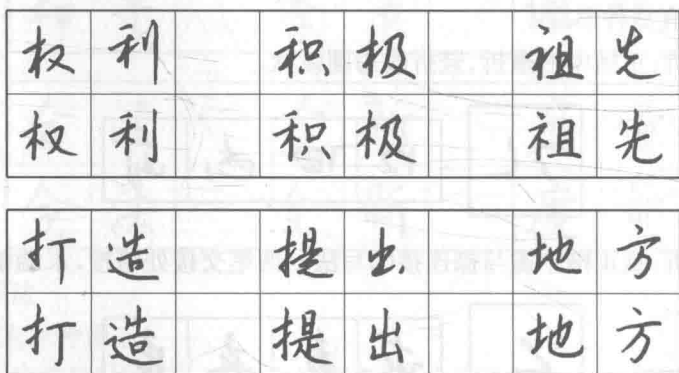 权利 积极 祖先
权利 积极 祖先
打造 提出 地方
打造 提出 地方